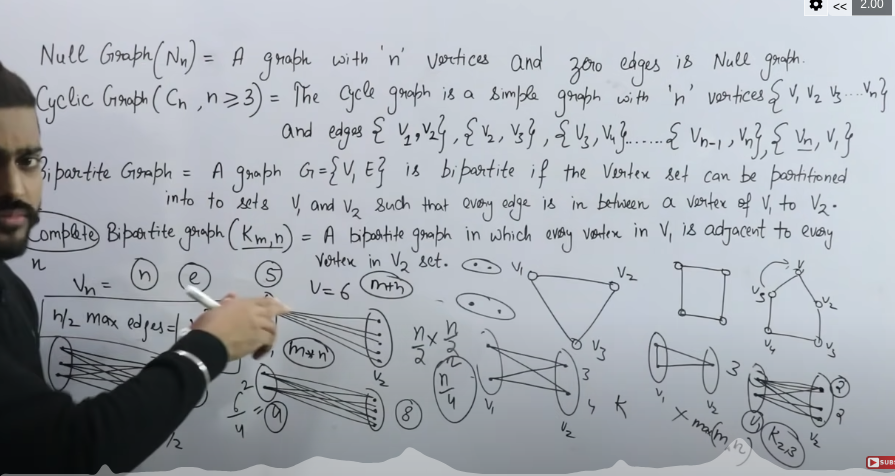 << 2.00
Null Graph (Nn) = A graph with 'n' vertices and zero edges is Null graph.
Cyclic Graph (Cn, n ≥ 3) = The cycle graph is a simple graph with 'n' vertices { V1 V2 V3 .... Vn}
and edges { V1, V2}, { V2, V3}, { V3, V4}....... { Vn-1, Vn}, { Vn, V1 }
Bipartite Graph = A graph G = {V, E} is bipartite if the Vertex set can be partitioned
into to sets V1 and V2 such that every edge is in between a vertex of V1 to V2.
Complete Bipartite graph (Km,n) = A bipartite graph in which every vertex in V1 is adjacent to every
vertex in V2 set.
n
Vn = n e 5 V = 6 m+n
V1 V2 V3
V1 V2 V3 V4 V5
n/2 max edges =
m*n
V2
n/2 × n/2
n²/4
V1 3 4 V2 K
V1 V2 3
× max(m,n)
6²/4 = 9
8
V1 V2 K2,3
/2
SUBS